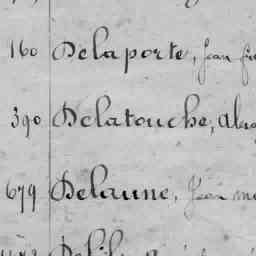 160 Delaporte, Jean
390 Delatouche,
679 Delaune, Jean